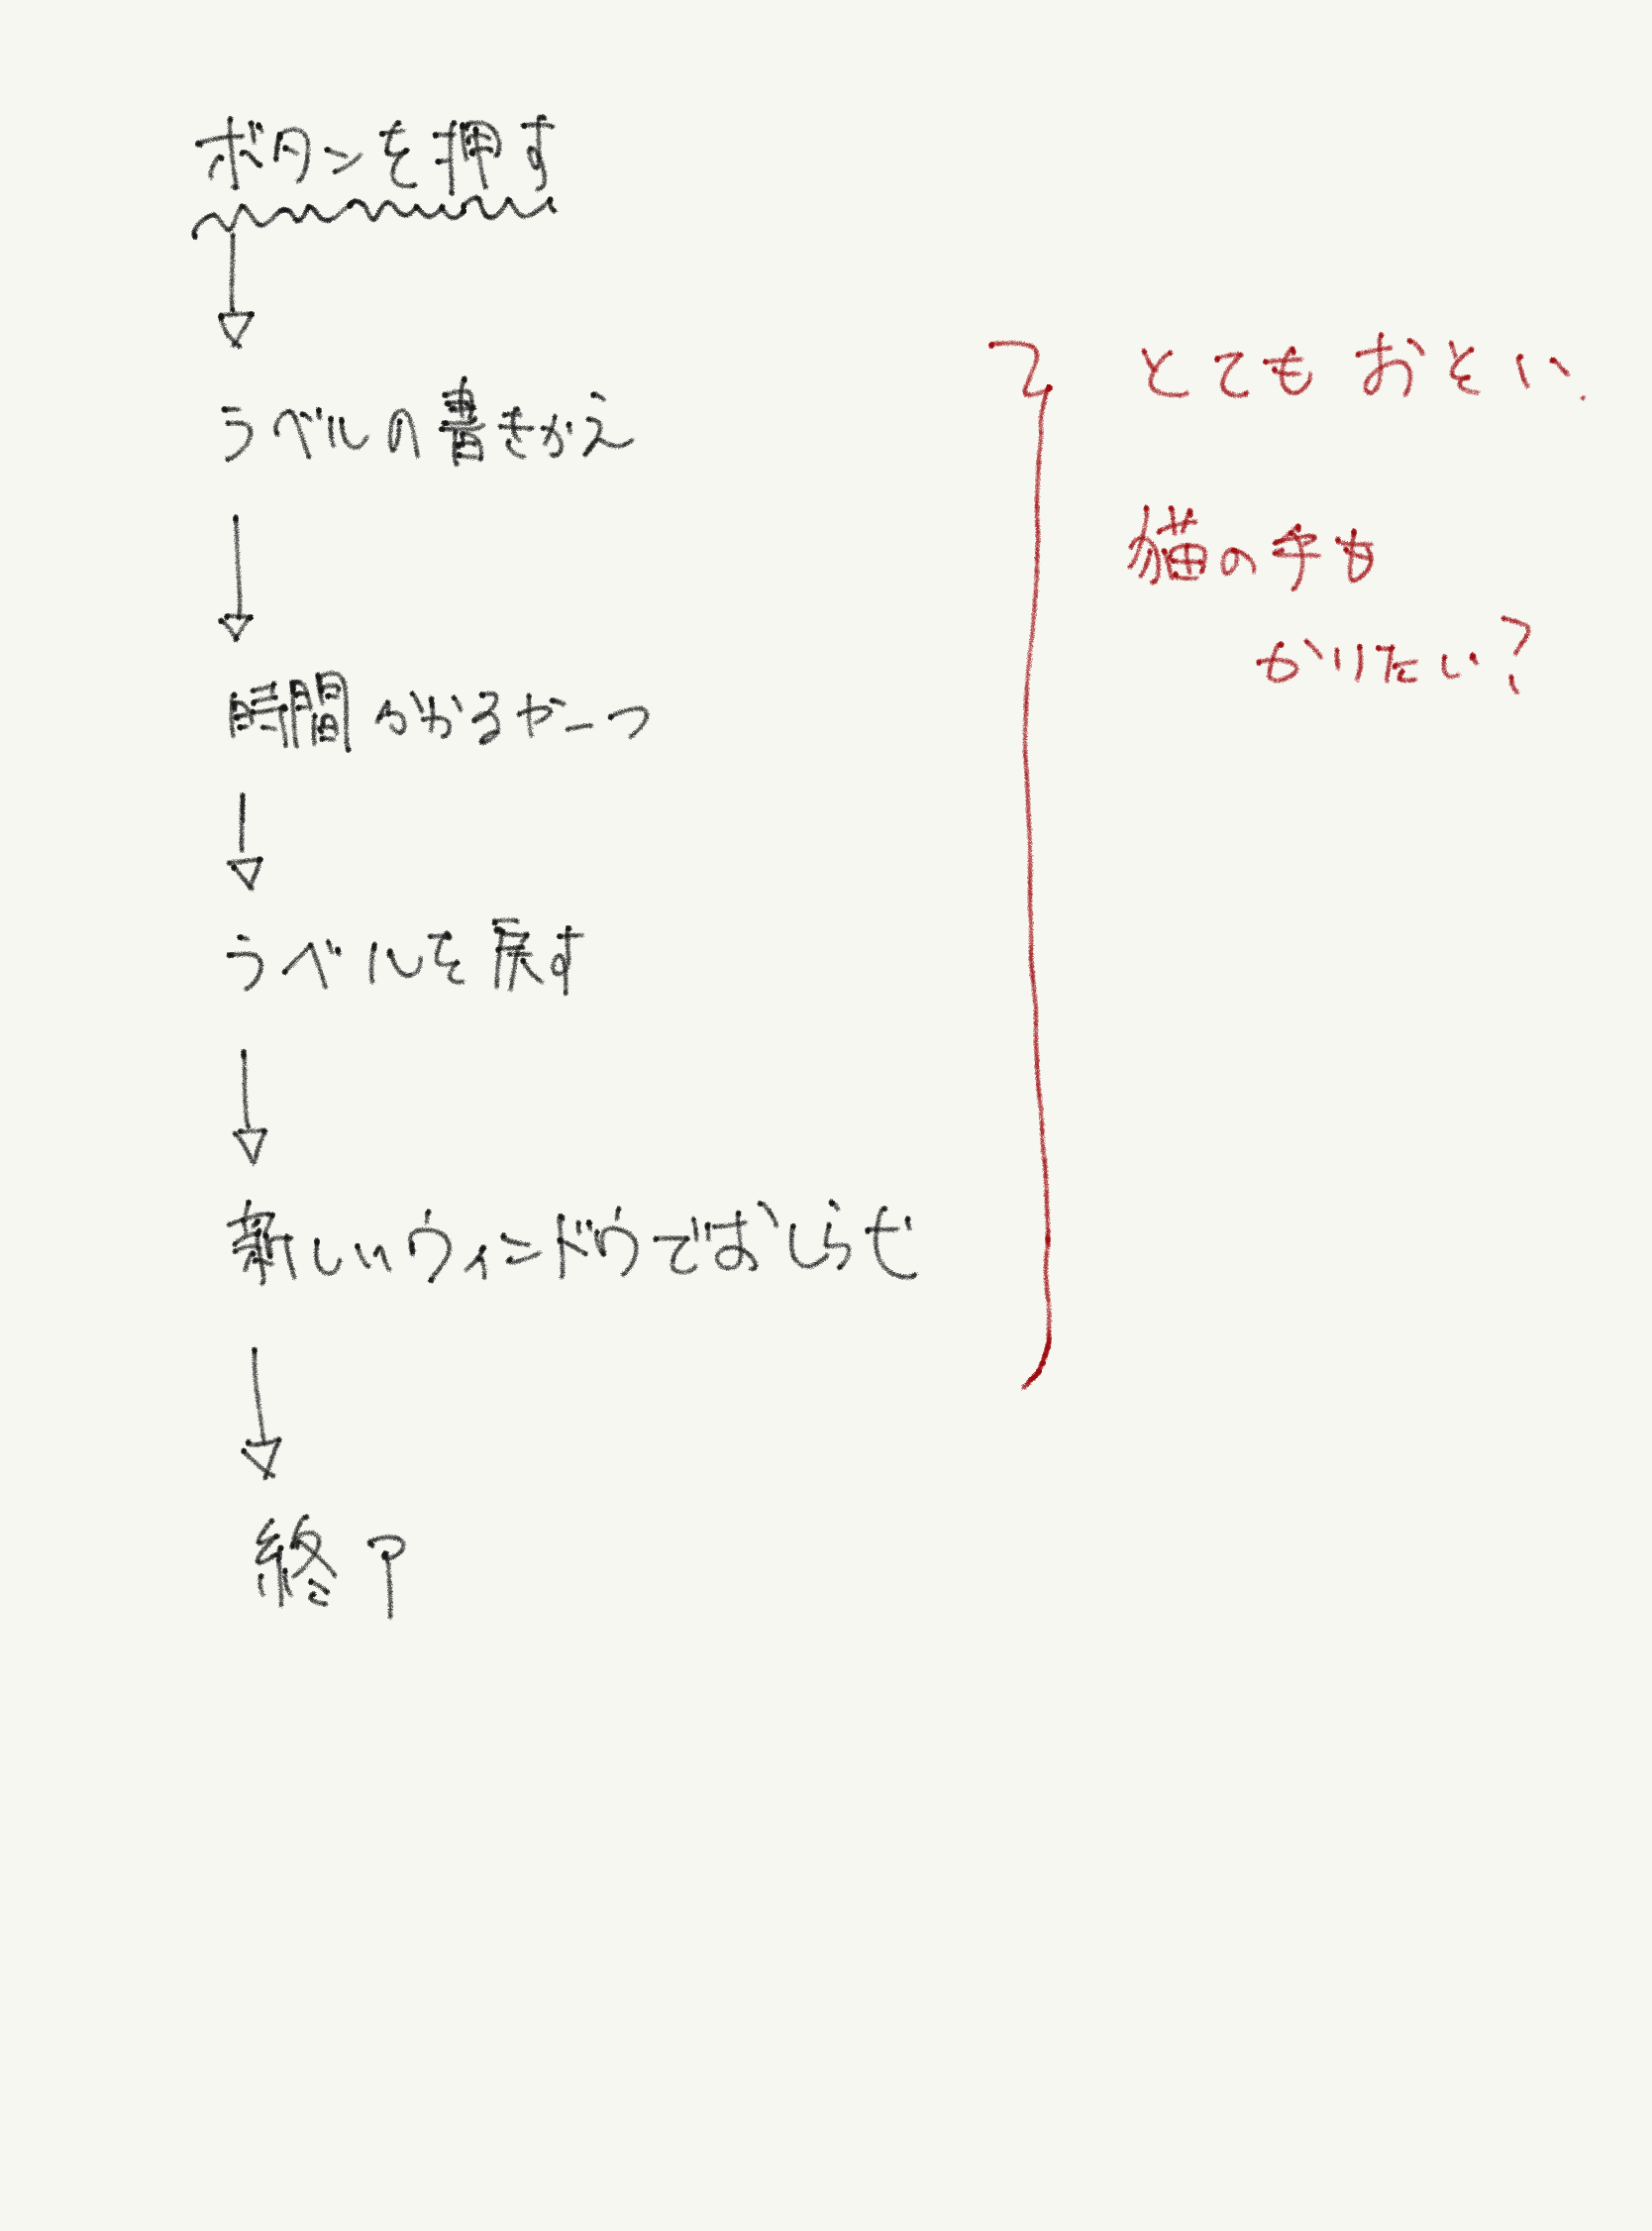 ボタンを押す
ラベルの書きかえ
時間かかるやーつ
ラベルを戻す
新しいウィンドウでおしらせ
終了
とてもおそい.
猫の手も
かりたい?